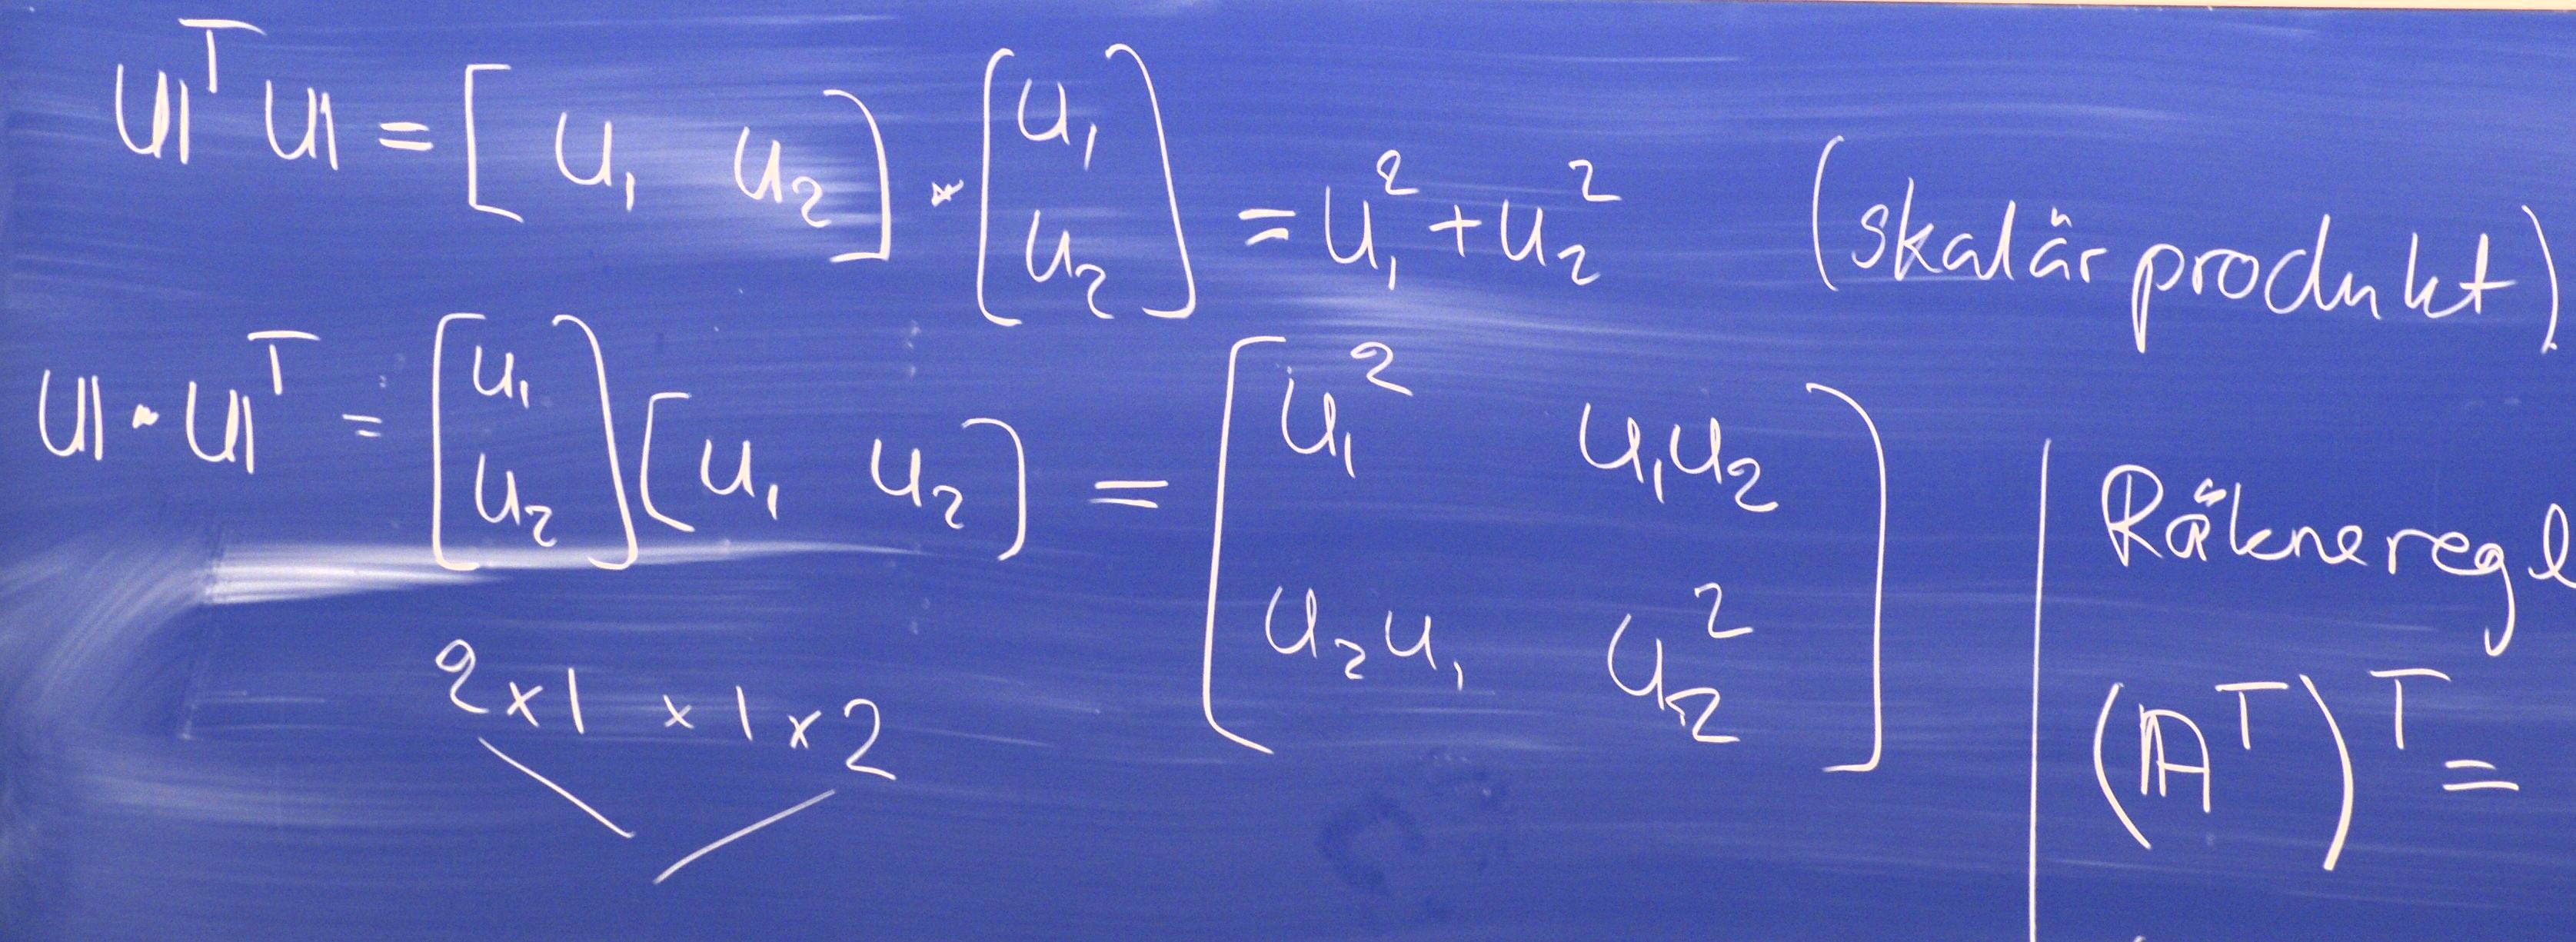 𝕦ᵀ 𝕦 = [ u₁ u₂ ] · [ u₁ ; u₂ ] = u₁² + u₂² (skalär produkt)
𝕦 · 𝕦ᵀ = [ u₁ ; u₂ ] [ u₁ u₂ ] = [ u₁² u₁u₂ ; u₂u₁ u₂² ]
2×1 × 1×2
Räkneregl
(𝔸ᵀ)ᵀ =